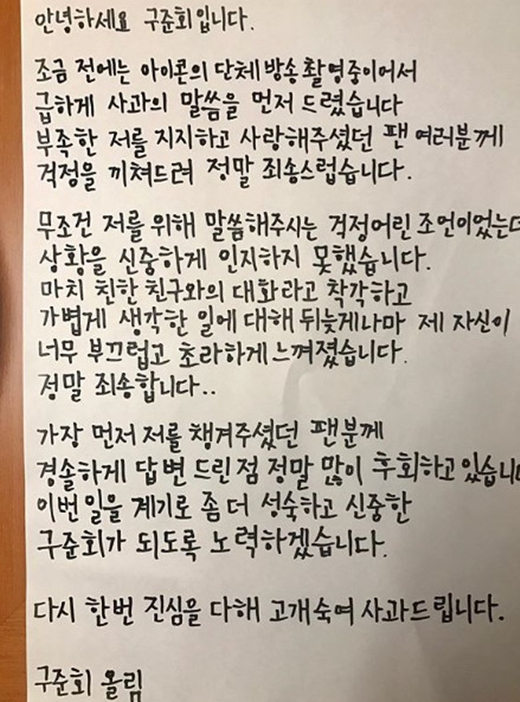 안녕하세요 구준회입니다.
조금 전에는 아이콘의 단체방송촬영중이어서
급하게 사과의 말씀을 먼저 드렸습니다
부족한 저를 지지하고 사랑해주셨던 팬 여러분께
걱정을 끼쳐드려 정말 죄송스럽습니다.
무조건 저를 위해 말씀해주시는 걱정어린 조언이었는데
상황을 신중하게 인지하지 못했습니다.
마치 친한 친구와의 대화라고 착각하고
가볍게 생각한 일에 대해 뒤늦게나마 제 자신이
너무 부끄럽고 초라하게 느껴졌습니다.
정말 죄송합니다..
가장 먼저 저를 챙겨주셨던 팬분께
경솔하게 답변 드린점 정말 많이 후회하고있습니다
이번 일을 계기로 좀 더 성숙하고 신중한
구준회가 되도록 노력하겠습니다.
다시 한번 진심을 다해 고개숙여 사과드립니다.
구준회 올림